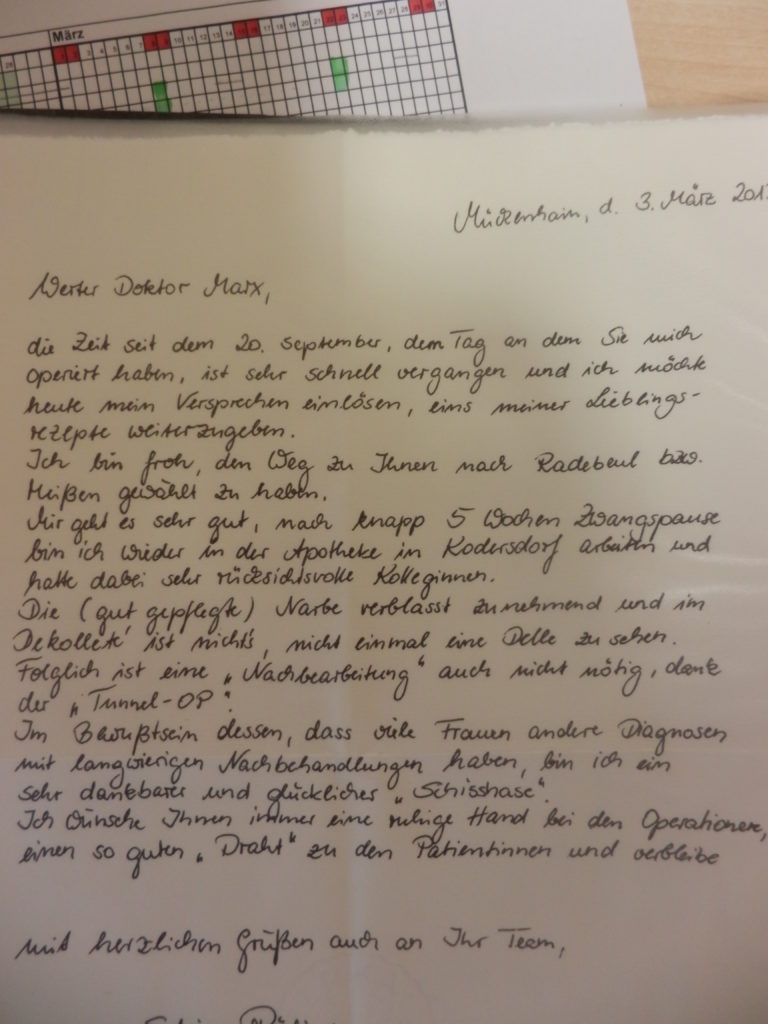 März
28 1 2 3 4 5 6 7 8 9 10 11 12 13 14 15 16 17 18 19 20 21 22 23 24 25 26 27 28 29 30 31
Mückenhain, d. 3. März
Werter Doktor Marx,
die Zeit seit dem 20. September, dem Tag an dem Sie mich
operiert haben, ist sehr schnell vergangen und ich möchte
heute mein Versprechen einlösen, eins meiner Lieblings-
rezepte weiterzugeben.
Ich bin froh, den Weg zu Ihnen nach Radebeul bzw.
Meißen gewählt zu haben.
Mir geht es sehr gut, nach knapp 5 Wochen Zwangspause
bin ich wieder in der Apotheke in Kodersdorf arbeiten und
hatte dabei sehr rücksichtsvolle Kolleginnen.
Die (gut gepflegte) Narbe verblasst zunehmend und im
Dekolleté ist nichts, nicht einmal eine Delle zu sehen.
Folglich ist eine „Nachbearbeitung“ auch nicht nötig, dank
der „Tunnel-OP“.
Im Bewußtsein dessen, dass viele Frauen andere Diagnosen
mit langwierigen Nachbehandlungen haben, bin ich ein
sehr dankbarer und glücklicher „Schisshase“.
Ich wünsche Ihnen immer eine ruhige Hand bei den Operationen,
einen so guten „Draht“ zu den Patientinnen und verbleibe
mit herzlichen Grüßen auch an Ihr Team,